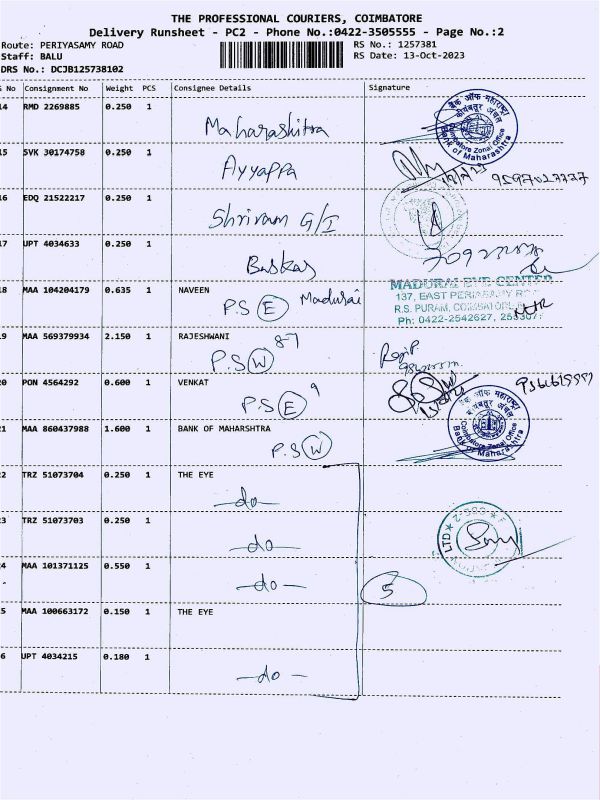 THE PROFESSIONAL COURIERS, COIMBATORE
Delivery Runsheet - PC2 - Phone No.:0422-3505555 - Page No.:2
Route: PERIYASAMY ROAD
Staff: BALU
DRS No.: DCJB125738102
RS No.: 1257381
RS Date: 13-Oct-2023
S No Consignment No Weight PCS Consignee Details Signature
14 RMD 2269885 0.250 1
Maharashtra
बैंक ऑफ महाराष्ट्र
कोयंबतूर अंचल
Coimbatore Zonal Office
Bank of Maharashtra
15 SVK 30174758 0.250 1
Ayyappa
16 EDQ 21522217 0.250 1
Shriram G/I
17 UPT 4034633 0.250 1
Baskar
18 MAA 104204179 0.635 1 NAVEEN
P.S (E) Madurai
MADURAI EYE CENTER
137, EAST PERIASAMY
R.S. PURAM, COIMBATORE
Ph: 0422-2542627,
19 MAA 569379934 2.150 1 RAJESHWANI
P.S (W) 8-7
20 PON 4564292 0.600 1 VENKAT
P.S (E) 9
21 MAA 860437988 1.600 1 BANK OF MAHARSHTRA
P.S (W)
बैंक ऑफ महाराष्ट्र
कोयंबतूर अंचल
Coimbatore Zonal Office
Bank of Maharashtra
22 TRZ 51073704 0.250 1 THE EYE
-do-
23 TRZ 51073703 0.250 1
-do-
24 MAA 101371125 0.550 1
-do-
5
LTD
25 MAA 100663172 0.150 1 THE EYE
26 UPT 4034215 0.180 1
-do-